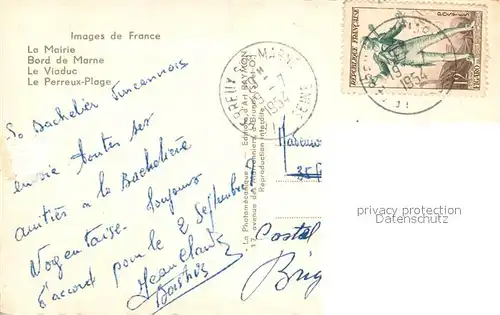 Images de France
La Mairie
Bord de Marne
Le Viaduc
Le Perreux-Plage
Le Bachelier Vincennois
envoie toutes ses
amitiés à la Bachelière
Nogentaise. Toujours
d'accord pour le 2 Septembre
Jean Claude
PERREUX S/ MARNE
1954
SEINE
RÉPUBLIQUE FRANÇAISE
POSTES
12F
1954
La Photomécanique
Edition d'Art RAYMON
17, avenue des Marronniers à Brunoy (S.-&-O.)
Reproduction interdite
35
Postal
Brig
privacy protection
Datenschutz